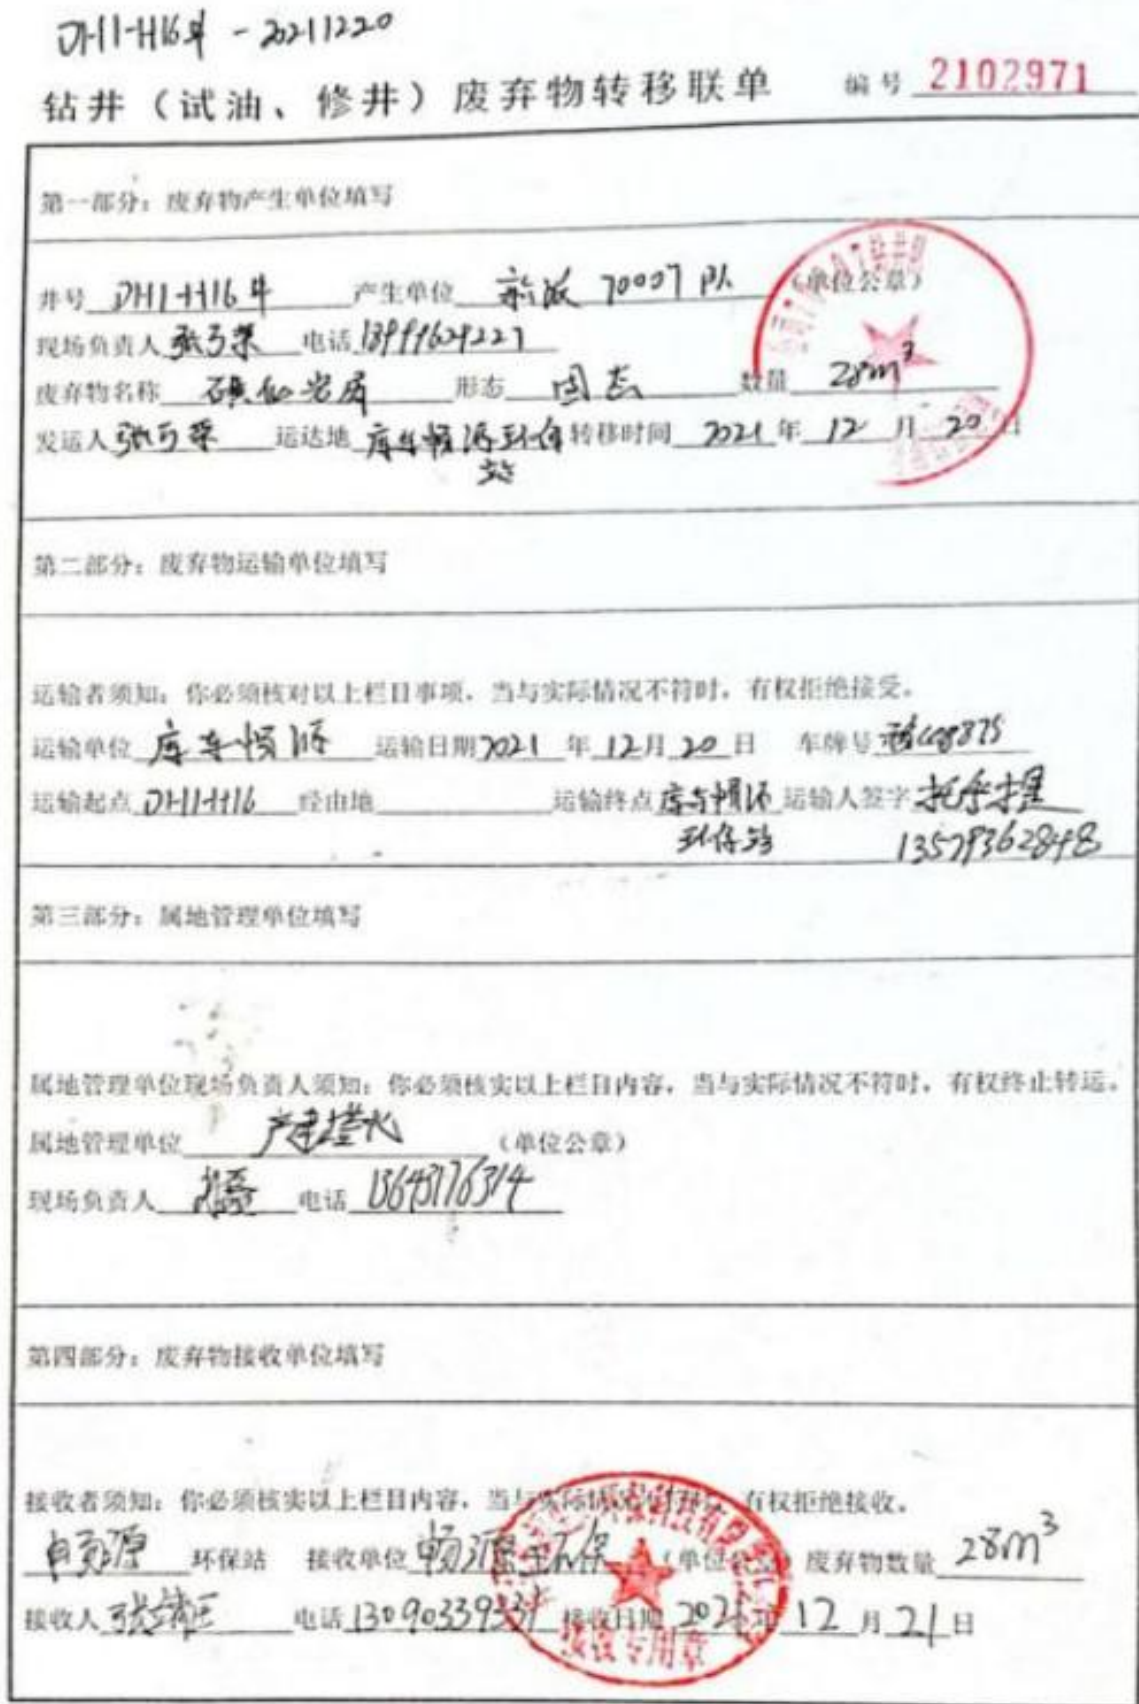 DH1-H16井 - 20211220
钻井（试油、修井）废弃物转移联单 编号 2102971
第一部分：废弃物产生单位填写
井号 DH1-H16井 产生单位 70007队 （单位公章）
现场负责人 电话 13999629227
废弃物名称 磺化岩屑 形态 固态 数量 28m³
发运人 运达地 库车畅源环保 转移时间 2021 年 12 月 20 日
站
第二部分：废弃物运输单位填写
运输者须知：你必须核对以上栏目事项，当与实际情况不符时，有权拒绝接受。
运输单位 库车畅源 运输日期 2021 年 12 月 20 日 车牌号
运输起点 DH1-H16 经由地 运输终点 库车畅源 运输人签字
环保站 13579362848
第三部分：属地管理单位填写
属地管理单位现场负责人须知：你必须核实以上栏目内容，当与实际情况不符时，有权终止转运。
属地管理单位 （单位公章）
现场负责人 电话 13643176314
第四部分：废弃物接收单位填写
接收者须知：你必须核实以上栏目内容，当与实际情况不符时，有权拒绝接收。
环保站 接收单位 畅源环保 （单位公章） 废弃物数量 28m³
接收人 电话 13090339331 接收日期 2021 年 12 月 21 日
接收专用章